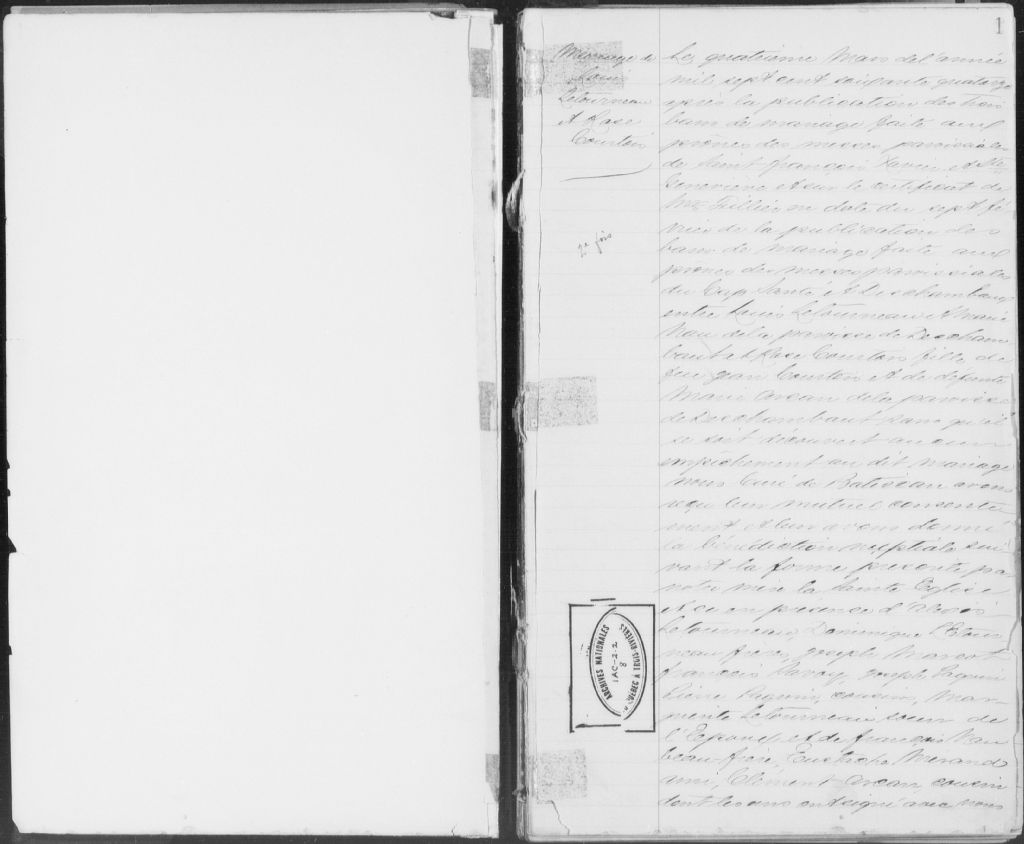 1
Mariage de
Louis
Letourneau
et Rose
Courtois
2e fois
Le quatrième Mars de l'année
mil sept cent soixante quatorze
après la publication des trois
bans de mariage faite aux
prônes des messes paroissiales
de Saint françois Xavier et Ste
Geneviève et sur le certificat de
Mr. en date du sept fé
vrier de la publication des
bans de mariage faite aux
prônes des messes paroissiales
du Cap Santé et Deschambaux
entre Louis Letourneau et Marie
Nau de la paroisse de Descham
baut et Rose Courtois fille de
feu jean Courtois et de défunte
Marie Arcan de la paroisse
de Deschambaut sans qu'il
se soit découvert aucun
empêchement au dit mariage
nous Curé de Batiscan avons
reçu leur mutuel consente
ment et leur avons donné
la bénédiction nuptiale sui
vant la forme prescrite par
notre mère la Sainte Eglise
et ce en présence d'alexis
Letourneau, Dominique L'Etour
neau frères, joseph Marcot
françois joseph Paquin
Paquin, cousin, Mar
guerite Letourneau soeur de
l'Epoux et de françois Nau
beau frère, Eustache Merand
ami, Clément Arcan, cousin
dont les uns ont signé avec nous
ARCHIVES NATIONALES
IAC-2:2
8
QUÉBEC À TROIS-RIVIÈRES